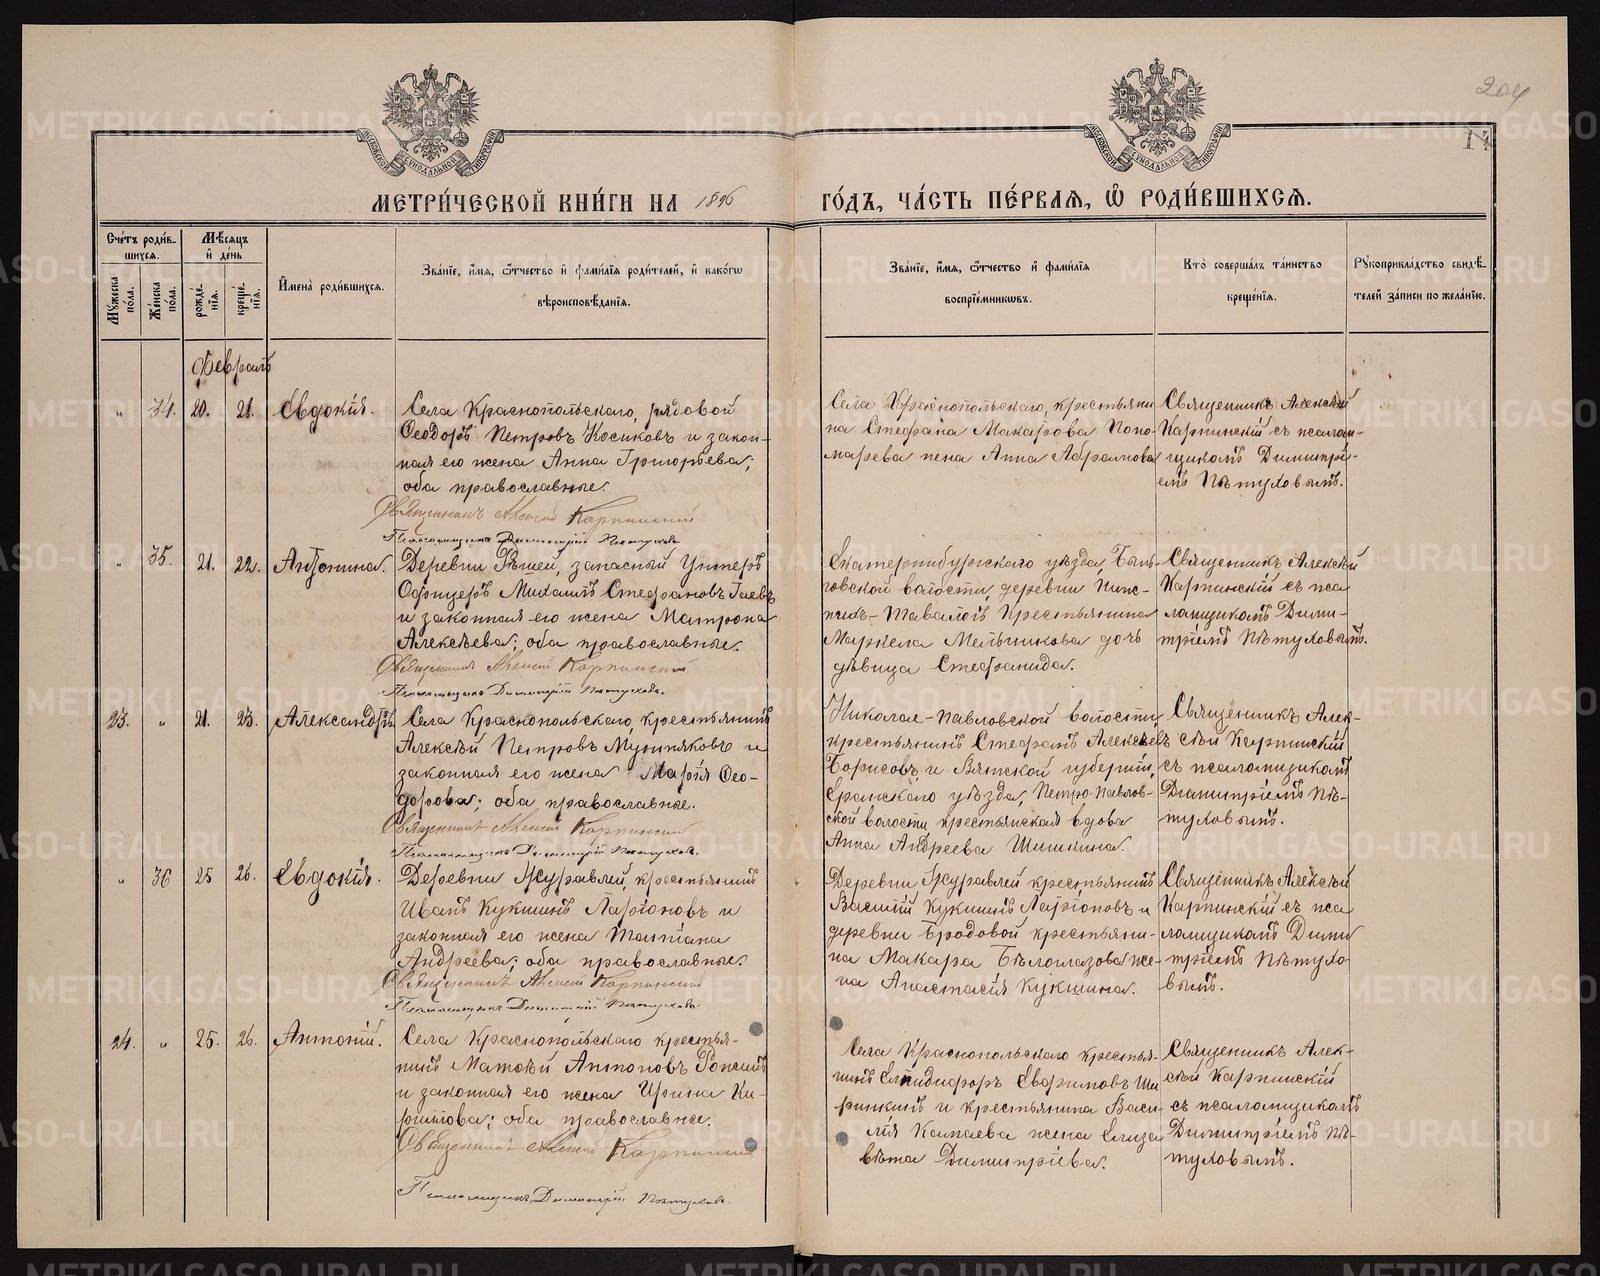 204
14
МЕТРИ́ЧЕСКОЙ КНИ́ГИ НА 1896 ГО́ДЪ, ЧА́СТЬ ПЕ́РВАЯ, Ѿ РОДИ́ВШИХСЯ.
Сче́тъ роди́в-
шихся.
Му́жеска по́ла.
Же́нска по́ла.
Мѣ́сяцъ и де́нь
рожде́нія.
креще́нія.
Имена̀ роди́вшихся.
Зва́ніе, и́мя, ѻ҆́тчество и фами́лія роди́телей, и како́гѡ
вѣроисповѣ́данія.
Зва́ніе, и́мя, ѻ҆́тчество и фами́лія
воспріе́мникѡвъ.
Кто̀ соверша́лъ та́инство
креще́нія.
Рꙋкоприкла́дство свидѣ́-
телей за́писи по жела́нію.
Февраль
„ 34. 20. 21. Евдокія.
Села Краснопольскаго, рядовой
Ѳеодоръ Петровъ Косиковъ и закон-
ная его жена Анна Григорьева;
оба православные.
Священникъ Алексій Карпинскій
Псаломщикъ Димитрій Пѣтуховъ
Села Краснопольскаго, крестьяни
на Стефана Макарова Поно-
марева жена Анна Абрамова
Священникъ Алексѣй
Карпинскій съ псалом-
щикомъ Димитрі-
емъ Пѣтуховымъ.
„ 35. 21. 22. Антонина.
Деревни Фѣшей, запасный Унтеръ
Офицеръ Михаилъ Стефановъ Гаевъ
и законная его жена Матрона
Алексѣева; оба православные.
Священникъ Алексій Карпинскій
Псаломщикъ Димитрій Пѣтуховъ.
Екатеринбургскаго уѣзда, Бын-
говской волости, деревни
Тавалогъ крестьянина
Маркела Мельникова дочь
дѣвица Стефанида.
Священникъ Алексѣй
Карпинскій съ пса
ломщикомъ Дими-
тріемъ Пѣтуховымъ.
23. „ 21. 23. Александръ.
Села Краснопольскаго, крестьянинъ
Алексѣй Петровъ Мунтяковъ и
законная его жена Марія Ѳео-
дорова; оба православные.
Священникъ Алексій Карпинскій
Псаломщикъ Димитрій Пѣтуховъ.
Николае-Павловской волости,
крестьянинъ Стефанъ Алексѣевъ
Борисовъ и Вятской губерніи,
Яранскаго уѣзда, Петро-Павлов-
ской волости крестьянская вдова
Анна Андреева Шишкина.
Священникъ Алек-
сѣй Карпинскій
съ псаломщикомъ
Димитріемъ Пѣ-
туховымъ.
„ 36 25 26. Евдокія.
Деревни Журавлей, крестьянинъ
Иванъ Кукшинъ Ларіоновъ и
законная его жена Татіана
Андреева; оба православные.
Священникъ Алексій Карпинскій
Псаломщикъ Димитрій Пѣтуховъ
Деревни Журавлей крестьянинъ
Василій Кукшинъ Ларіоновъ и
деревни Бродовой крестьяни-
на Макара Бѣлоглазова же-
на Анастасія Кукшина.
Священникъ Алексѣй
Карпинскій съ пса
ломщикомъ Дими
тріемъ Пѣтухо
вымъ.
24. „ 25. 26. Антоній.
Села Краснопольскаго крестья-
нинъ Матѳѣй Антоновъ Ронсинъ
и законная его жена Ирина Ки-
риллова; оба православные.
Священникъ Алексій Карпинскій
Псаломщикъ Димитрій Пѣтуховъ.
Села Краснопольскаго крестья-
нинъ Елпидифоръ Евфимовъ Ши
ринкинъ и крестьянина Васи-
лія Камаева жена Елиза
вѣта Димитріева.
Священникъ Алек-
сѣй Карпинскій
съ псаломщикомъ
Димитріемъ Пѣ-
туховымъ.